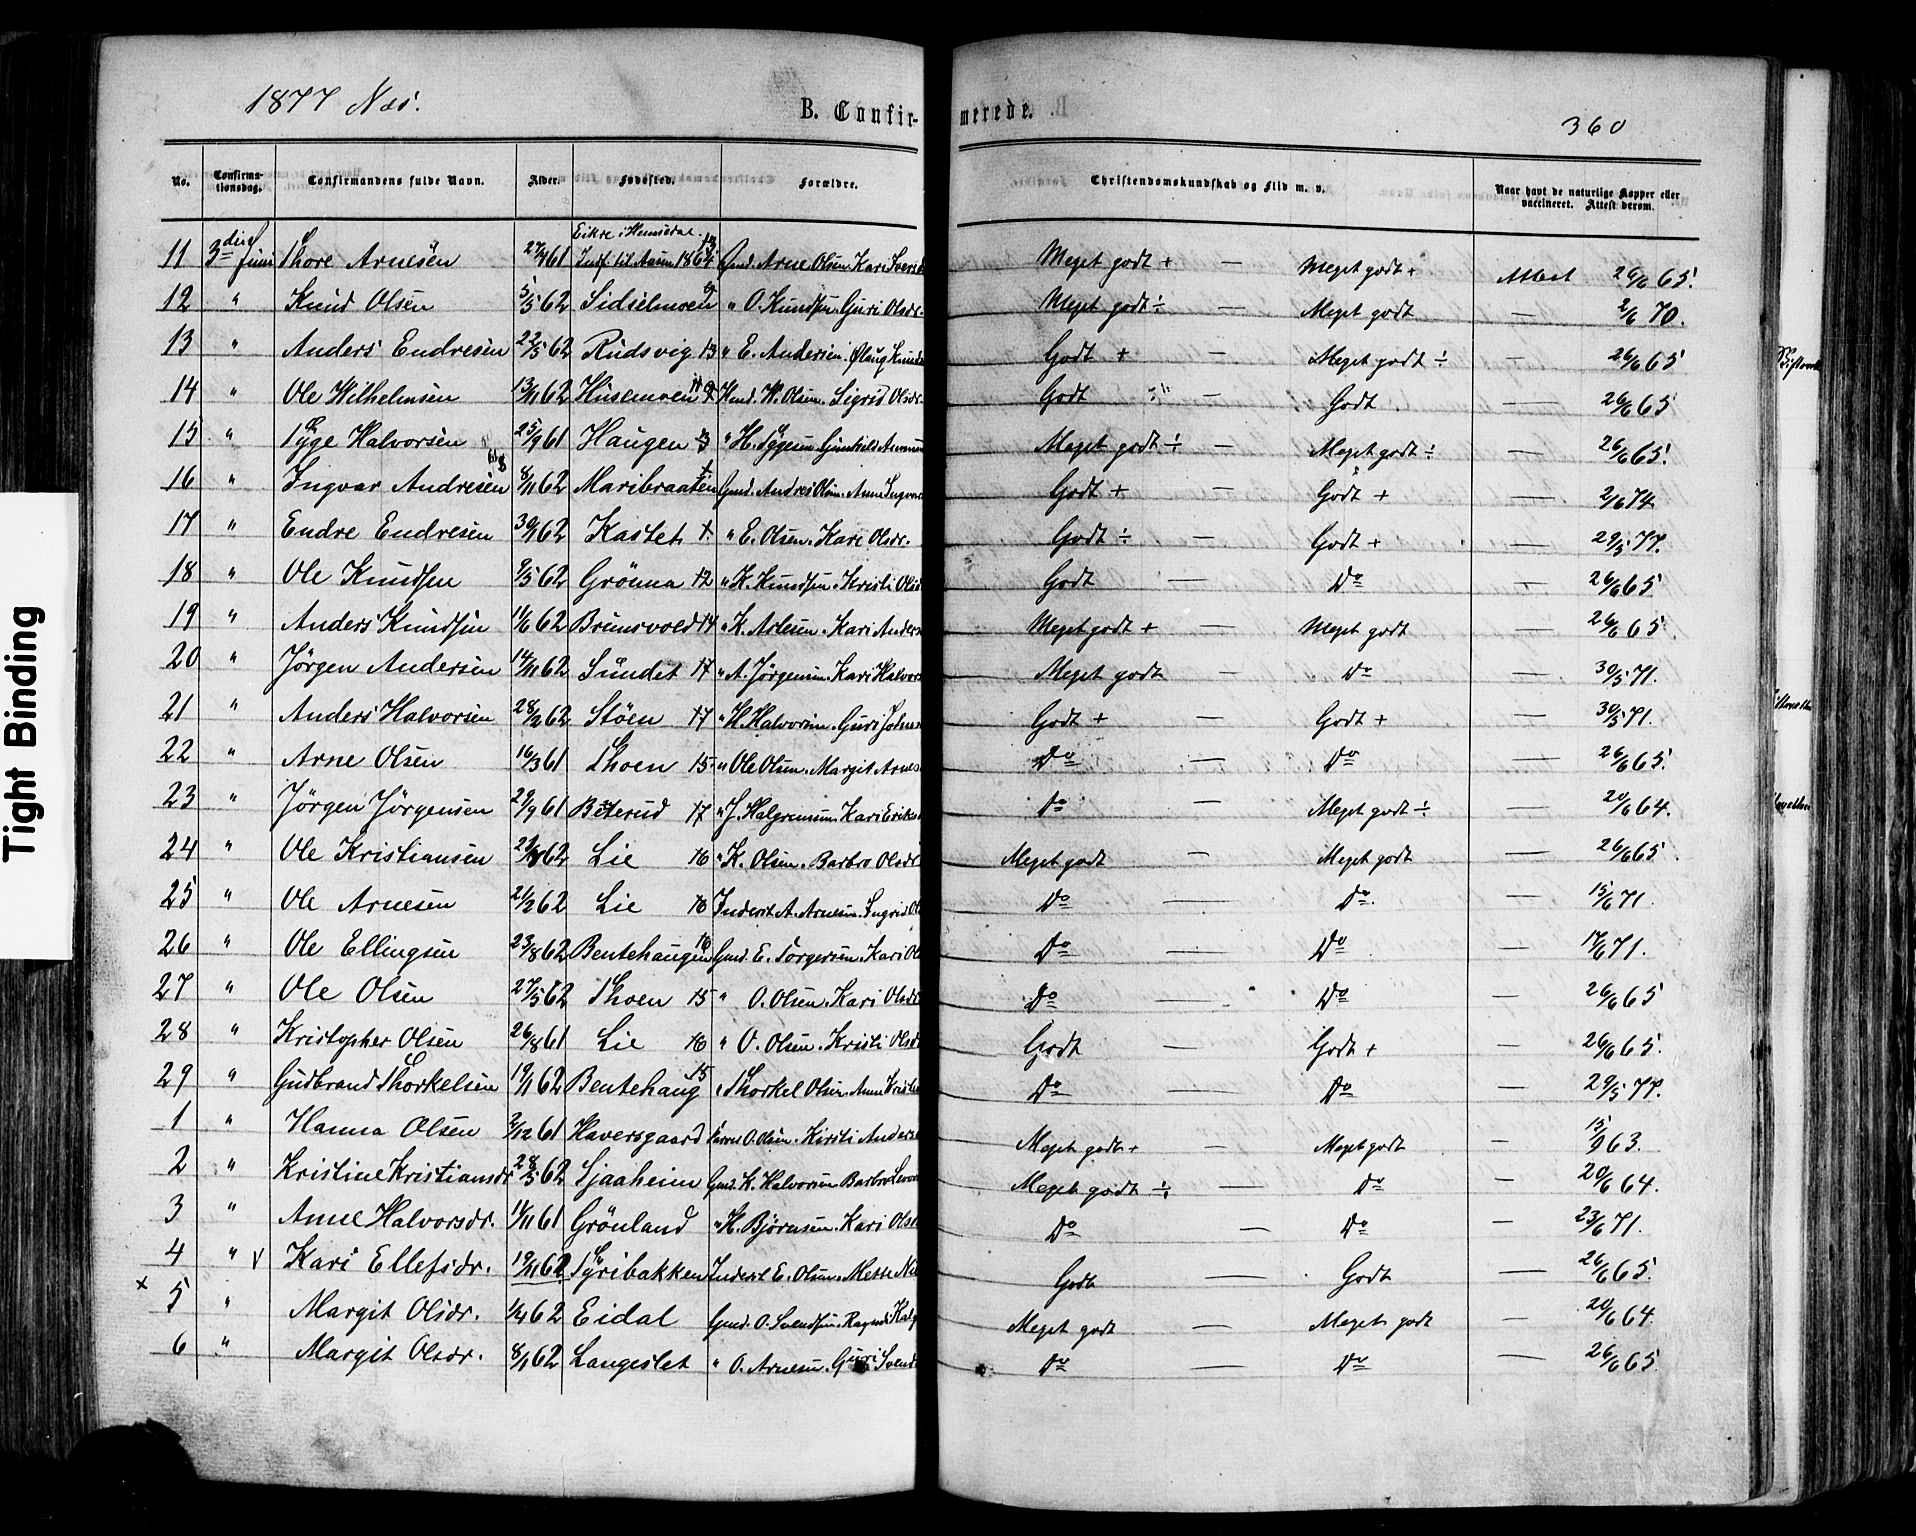 1877 Næs.
B. Confir-
merede.
360
No.
Confirma-
tionsdag.
Confirmandens fulde Navn.
Alder.
Fødested.
Forældre.
Christendomskundskab og Flid m. v.
Naar havt de naturlige Kopper eller
vaccineret. Attest derom.
Eikre i Hemsedal.
11 3die Juni Thore Arnesen 27/4 61 Indf. til Aaum 1864 13 Gmd. Arne Olsen Kari Iversd Meget godt + — Meget godt + Attest 26/6 65.
12 " Knud Olsen 5/5 62 Sidselmoen " O. Knudsen. Guri Olsdr. Meget godt ÷ — Meget godt — 2/6 70.
13 " Anders Endresen 22/5 62 Rudsvig 13 " E. Andersen. Ølaug Knuds Godt + — Meget godt ÷ — 26/6 65
14 " Ole Wilhelmsen 13/11 62 Husemoen Hmd. W. Olsen. Sigrid Olsdr. Godt — Godt — 26/6 65
15 " Tyge Halvorsen 25/9 61 Haugen 3 " H. Tygesen Gunhild Asmun Meget godt ÷ — Meget godt ÷ — 26/6 65.
16 " Ingvar Andresen 8/11 62 Maribraaten Gmd. Andres Olsen. Anne Ingvars Godt + — Godt + — 2/6 74.
17 " Endre Endresen 30/1 62 Kastet " E. Olsen. Kari Olsdr. Godt ÷ — Godt + — 29/5 77.
18 " Ole Knudsen 9/5 62 Grönna 12 " K. Knudsen. Kristi Olsd Godt — Do — 26/6 65
19 " Anders Knudsen 11/6 62 Brunsvold 14 " K. Arlesen. Kari Anders Meget godt + — Meget godt — 26/6 65.
20 " Jörgen Andersen 14/11 62 Sundet 17 " A. Jörgensen. Kari Halvors Meget godt — Do — 30/5 71.
21 " Anders Halvorsen 28/2 62 Stöen 17 " H. Halvorsen. Guri Johns Godt + — Godt + — 30/5 71.
22 " Arne Olsen 16/3 61 Thoen 15 " Ole Olsen. Margit Arnes Do — Do — 26/6 65.
23 " Jörgen Jörgensen 29/9 61 Beterud 17 " J. Halgrimsen. Kari Eriks Do — Meget godt ÷ — 20/6 64.
24 " Ole Kristiansen 22/8 62 Lie 16 " K. Olsen. Barbro Olsdr Meget godt — Meget godt — 26/6 65
25 " Ole Arnesen 21/2 62 Lie 16 Inderst A. Arnesen. Ingrid Ol Do — Do — 15/6 71.
26 " Ole Ellingsen 23/8 62 Bentehaugen 16 Gmd. E. Torgersen. Kari Ol Do — Do — 17/6 71.
27 " Ole Olsen 27/5 62 Thoen 15 " O. Olsen. Kari Olsdr Do — Do — 26/6 65
28 " Kristopher Olsen 26/8 61 Lie 16 " O. Olsen. Kristi Olsd Godt — Godt + — 26/6 65.
29 " Gudbrand Thorkelsen 19/11 62 Bentehaug 15 " Thorkel Olsen. Anne Kristi Do — Do — 29/5 77.
1 " Hanna Olsen 2/12 61 Haversgaard O. Olsen. Kirsti Anders Meget godt + — Meget godt 15/9 63.
2 " Kristine Kristiansdr 28/5 62 Sjaaheim Gmd. K. Halvorsen Barbro Meget godt ÷ — Do — 20/6 64.
3 " Anne Halvorsdr. 11/11 61 Grönland " H. Björnsen. Kari Olsd Do — Do — 23/6 71.
4 " V Kari Ellefsdr. 19/11 62 Tyribakken Inderst E. Olsen. Mette Nil Godt — Godt — 26/6 65.
x 5 " Margit Olsdr. 1/4 62 Eidal Gmd. O. Svendsen. Ragndi Halg Meget godt — Meget godt — 20/6 64.
6 " Margit Olsdr. 8/1 62 Langeslet " O. Arnesen. Guri Svends Do — Do — 26/6 65.
Tight Binding